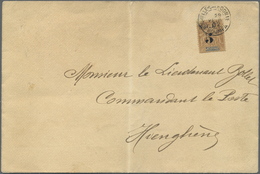 5
Monsieur le Lieutenant
Commandant le Poste
Hienghiène